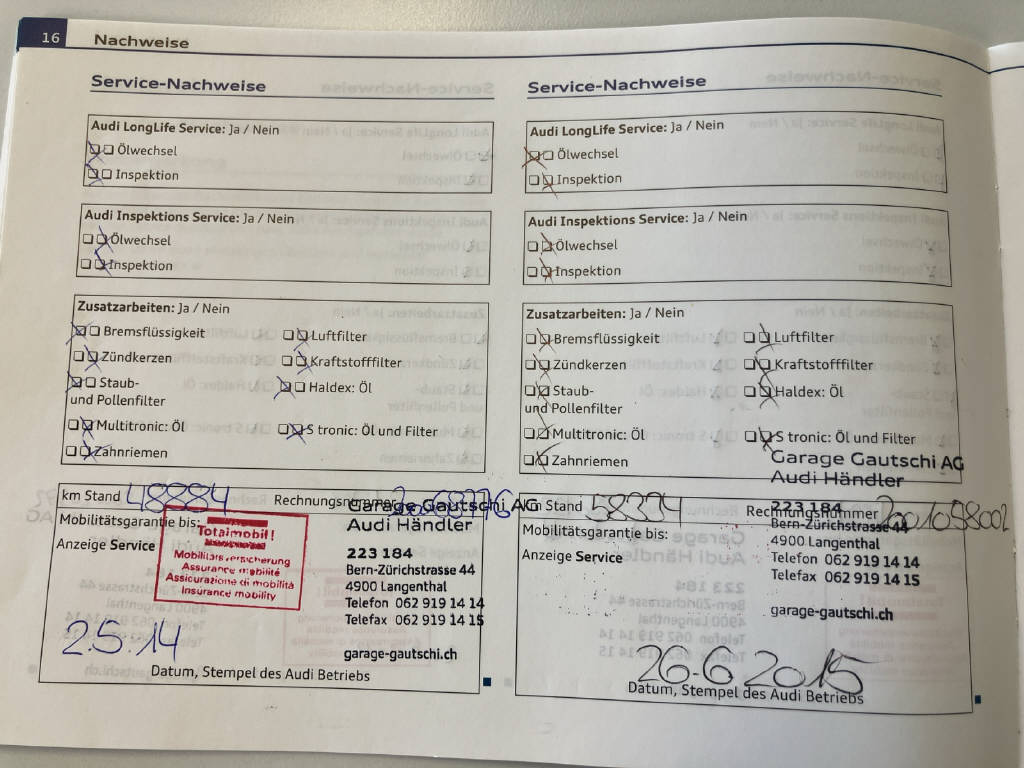 16 Nachweise
Service-Nachweise
Audi LongLife Service: Ja / Nein
Ölwechsel
Inspektion
Audi Inspektions Service: Ja / Nein
Ölwechsel
Inspektion
Zusatzarbeiten: Ja / Nein
Bremsflüssigkeit
Luftfilter
Zündkerzen
Kraftstofffilter
Staub-
und Pollenfilter
Haldex: Öl
Multitronic: Öl
S tronic: Öl und Filter
Zahnriemen
km Stand 48884 Rechnungsnummer
Mobilitätsgarantie bis:
Anzeige Service
Totalmobil!
Mobilitätsversicherung
Assurance mobilité
Assicurazione di mobilità
Insurance mobility
Garage Gautschi AG
Audi Händler
223 184
Bern-Zürichstrasse 44
4900 Langenthal
Telefon 062 919 14 14
Telefax 062 919 14 15
garage-gautschi.ch
2.5.14
Datum, Stempel des Audi Betriebs
Service-Nachweise
Audi LongLife Service: Ja / Nein
Ölwechsel
Inspektion
Audi Inspektions Service: Ja / Nein
Ölwechsel
Inspektion
Zusatzarbeiten: Ja / Nein
Bremsflüssigkeit
Luftfilter
Zündkerzen
Kraftstofffilter
Staub-
und Pollenfilter
Haldex: Öl
Multitronic: Öl
S tronic: Öl und Filter
Zahnriemen
Garage Gautschi AG
Audi Händler
km Stand 58394 Rechnungsnummer 2001058002
Mobilitätsgarantie bis:
Anzeige Service
223 184
Bern-Zürichstrasse 44
4900 Langenthal
Telefon 062 919 14 14
Telefax 062 919 14 15
garage-gautschi.ch
26-6 2015
Datum, Stempel des Audi Betriebs